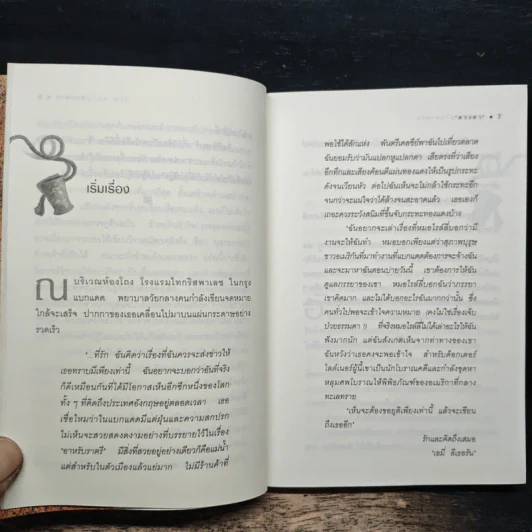 เริ่มเรื่อง
ณ บริเวณห้องโถง โรงแรมไทกริสพาเลซ ในกรุง
แบกแดด พยาบาลวัยกลางคนกำลังเขียนจดหมาย
ใกล้จะเสร็จ ปากกาของเธอเคลื่อนไปมาบนแผ่นกระดาษอย่าง
รวดเร็ว
'...ที่รัก ฉันคิดว่าเรื่องที่ฉันควรจะส่งข่าวให้
เธอทราบมีเพียงเท่านี้ ฉันอยากจะบอกว่าอันที่จริง
ก็ดีเหมือนกันที่ได้มีโอกาสเห็นอีกซีกหนึ่งของโลก
ทั้ง ๆ ที่คิดถึงประเทศอังกฤษอยู่ตลอดเวลา เธอ
เชื่อไหมว่าในแบกแดดมีแต่ฝุ่นและความสกปรก
ไม่เห็นจะสวยสดงดงามอย่างที่บรรยายไว้ในเรื่อง
'อาหรับราตรี' มีสิ่งที่สวยอยู่อย่างเดียวก็คือแม่น้ำ
แต่สำหรับในตัวเมืองแล้วแย่มาก ไม่มีร้านค้าที่
"ดวงตา" • 7
พอใช้ได้สักแห่ง พันตรีเคลซีย์พาฉันไปเที่ยวตลาด
ฉันยอมรับว่ามันแปลกหูแปลกตา เสียตรงที่ว่าเสียง
อึกทึกและเสียงค้อนตีแผ่นทองแดงให้เป็นรูปกระทะ
ดังจนเวียนหัว ต่อไปฉันเห็นจะไม่กล้าใช้กระทะอีก
จนกว่าจะแน่ใจว่าได้ล้างจนสะอาดแล้ว เธอเองก็
เถอะควรระวังสนิมที่ขึ้นจับกระทะทองแดงบ้าง
'ฉันอยากจะเล่าเรื่องที่หมอไรล์ลี่บอกว่ามี
งานจะให้ฉันทำ หมอบอกเพียงแต่ว่าสุภาพบุรุษ
ชาวอเมริกันที่มาทำงานที่แบกแดดต้องการจะจ้างฉัน
และจะมาหาฉันตอนบ่ายวันนี้ เขาต้องการให้ไป
ดูแลภรรยาของเขา หมอไรล์ลีบอกฉันว่าภรรยา
เขาคิดมาก และไม่ได้บอกอะไรฉันมากกว่านั้น ซึ่ง
คนทั่วไปพอจะเข้าใจความหมาย (คงไม่ใช่เรื่องเจ็บ
ป่วยธรรมดา !) ที่จริงหมอไรล์ลีไม่ได้เล่าอะไรให้ฉัน
ฟังมากนัก แต่ฉันสังเกตเห็นจากท่าทางของเขา
ฉันหวังว่าเธอคงจะพอเข้าใจ สำหรับด็อกเตอร์
ไลด์เนอร์ผู้นี้เป็นนักโบราณคดีและกำลังขุดหา
หลุมศพโบราณให้พิพิธภัณฑ์ของอเมริกาที่กลาง
ทะเลทราย
'เห็นจะต้องขอยุติเพียงเท่านี้ แล้วจะเขียน
ถึงเธออีก'
รักและคิดถึงเสมอ
'เอมี่ ลีเธอรัน'